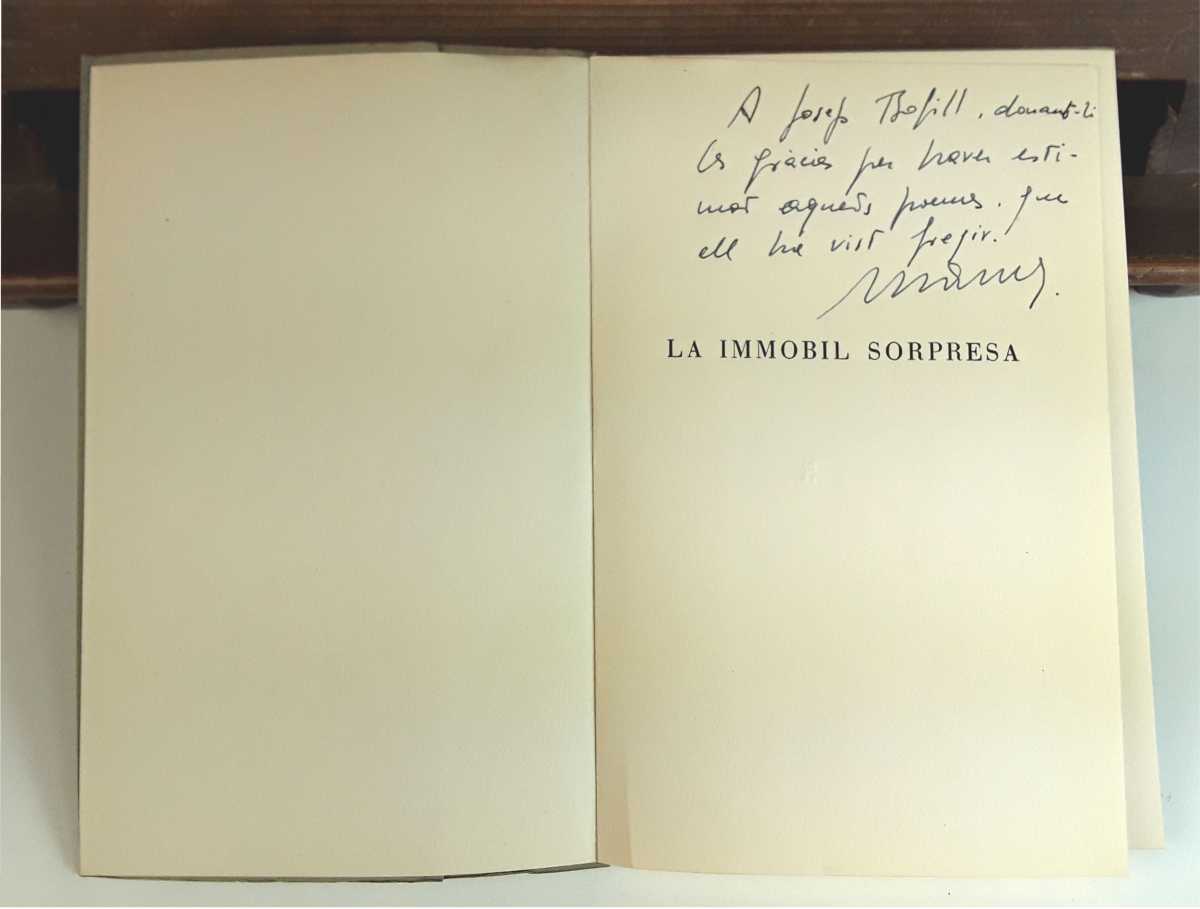 A Josep Bofill, donant-li
les gràcies per haver esti-
mat aquests poemes, que
ell ha vist fregir.
LA IMMOBIL SORPRESA